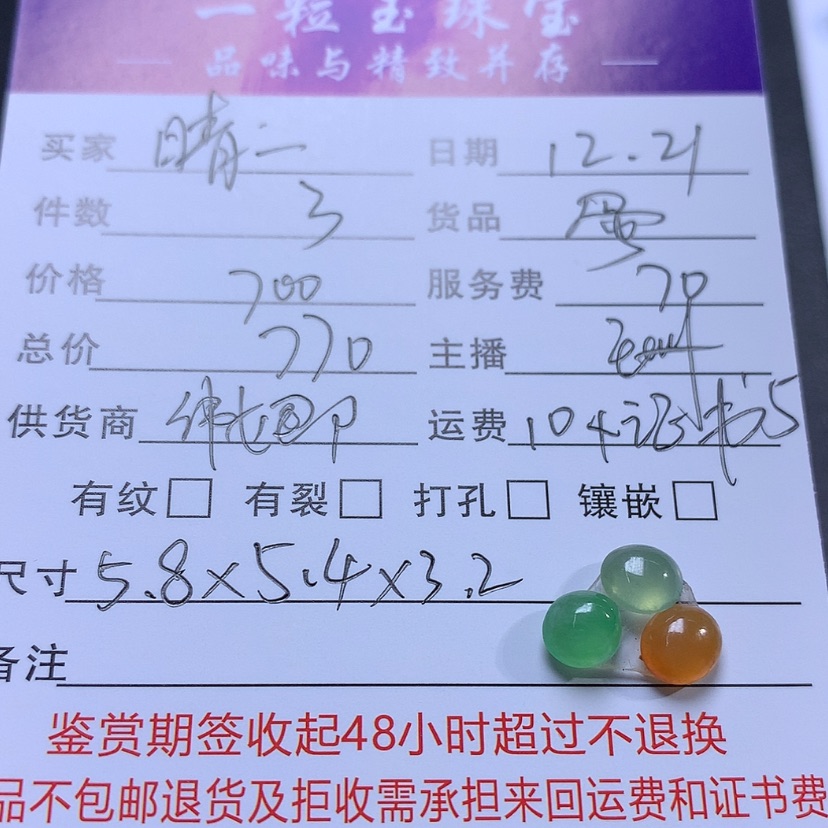 一粒玉珠宝
品味与精致并存
买家 晴 日期 12.21
件数 3 货品 蛋
价格 700 服务费 70
总价 770 主播
供货商 运费 10+证书5
有纹□ 有裂□ 打孔□ 镶嵌□
尺寸 5.8×5.4×3.2
备注
鉴赏期签收起48小时超过不退换
品不包邮退货及拒收需承担来回运费和证书费